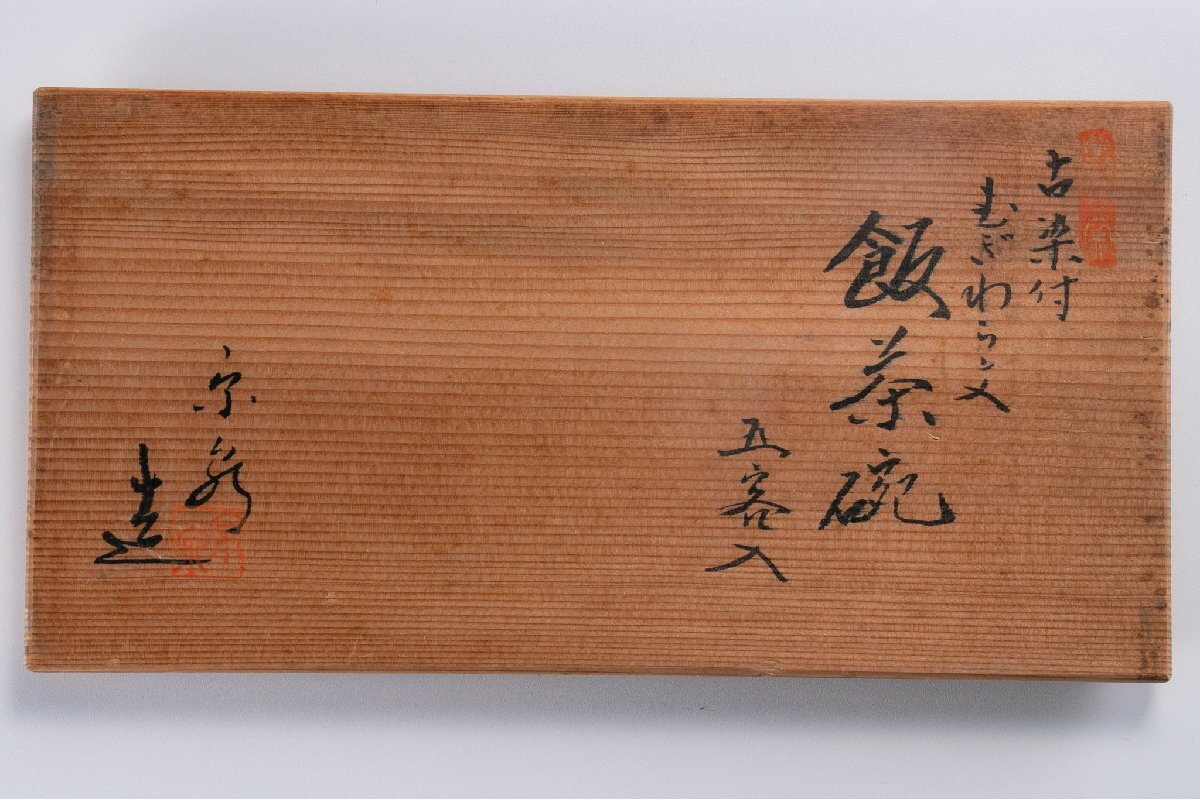 古染付
むぎわら文
飯茶碗
五客入
宗
造